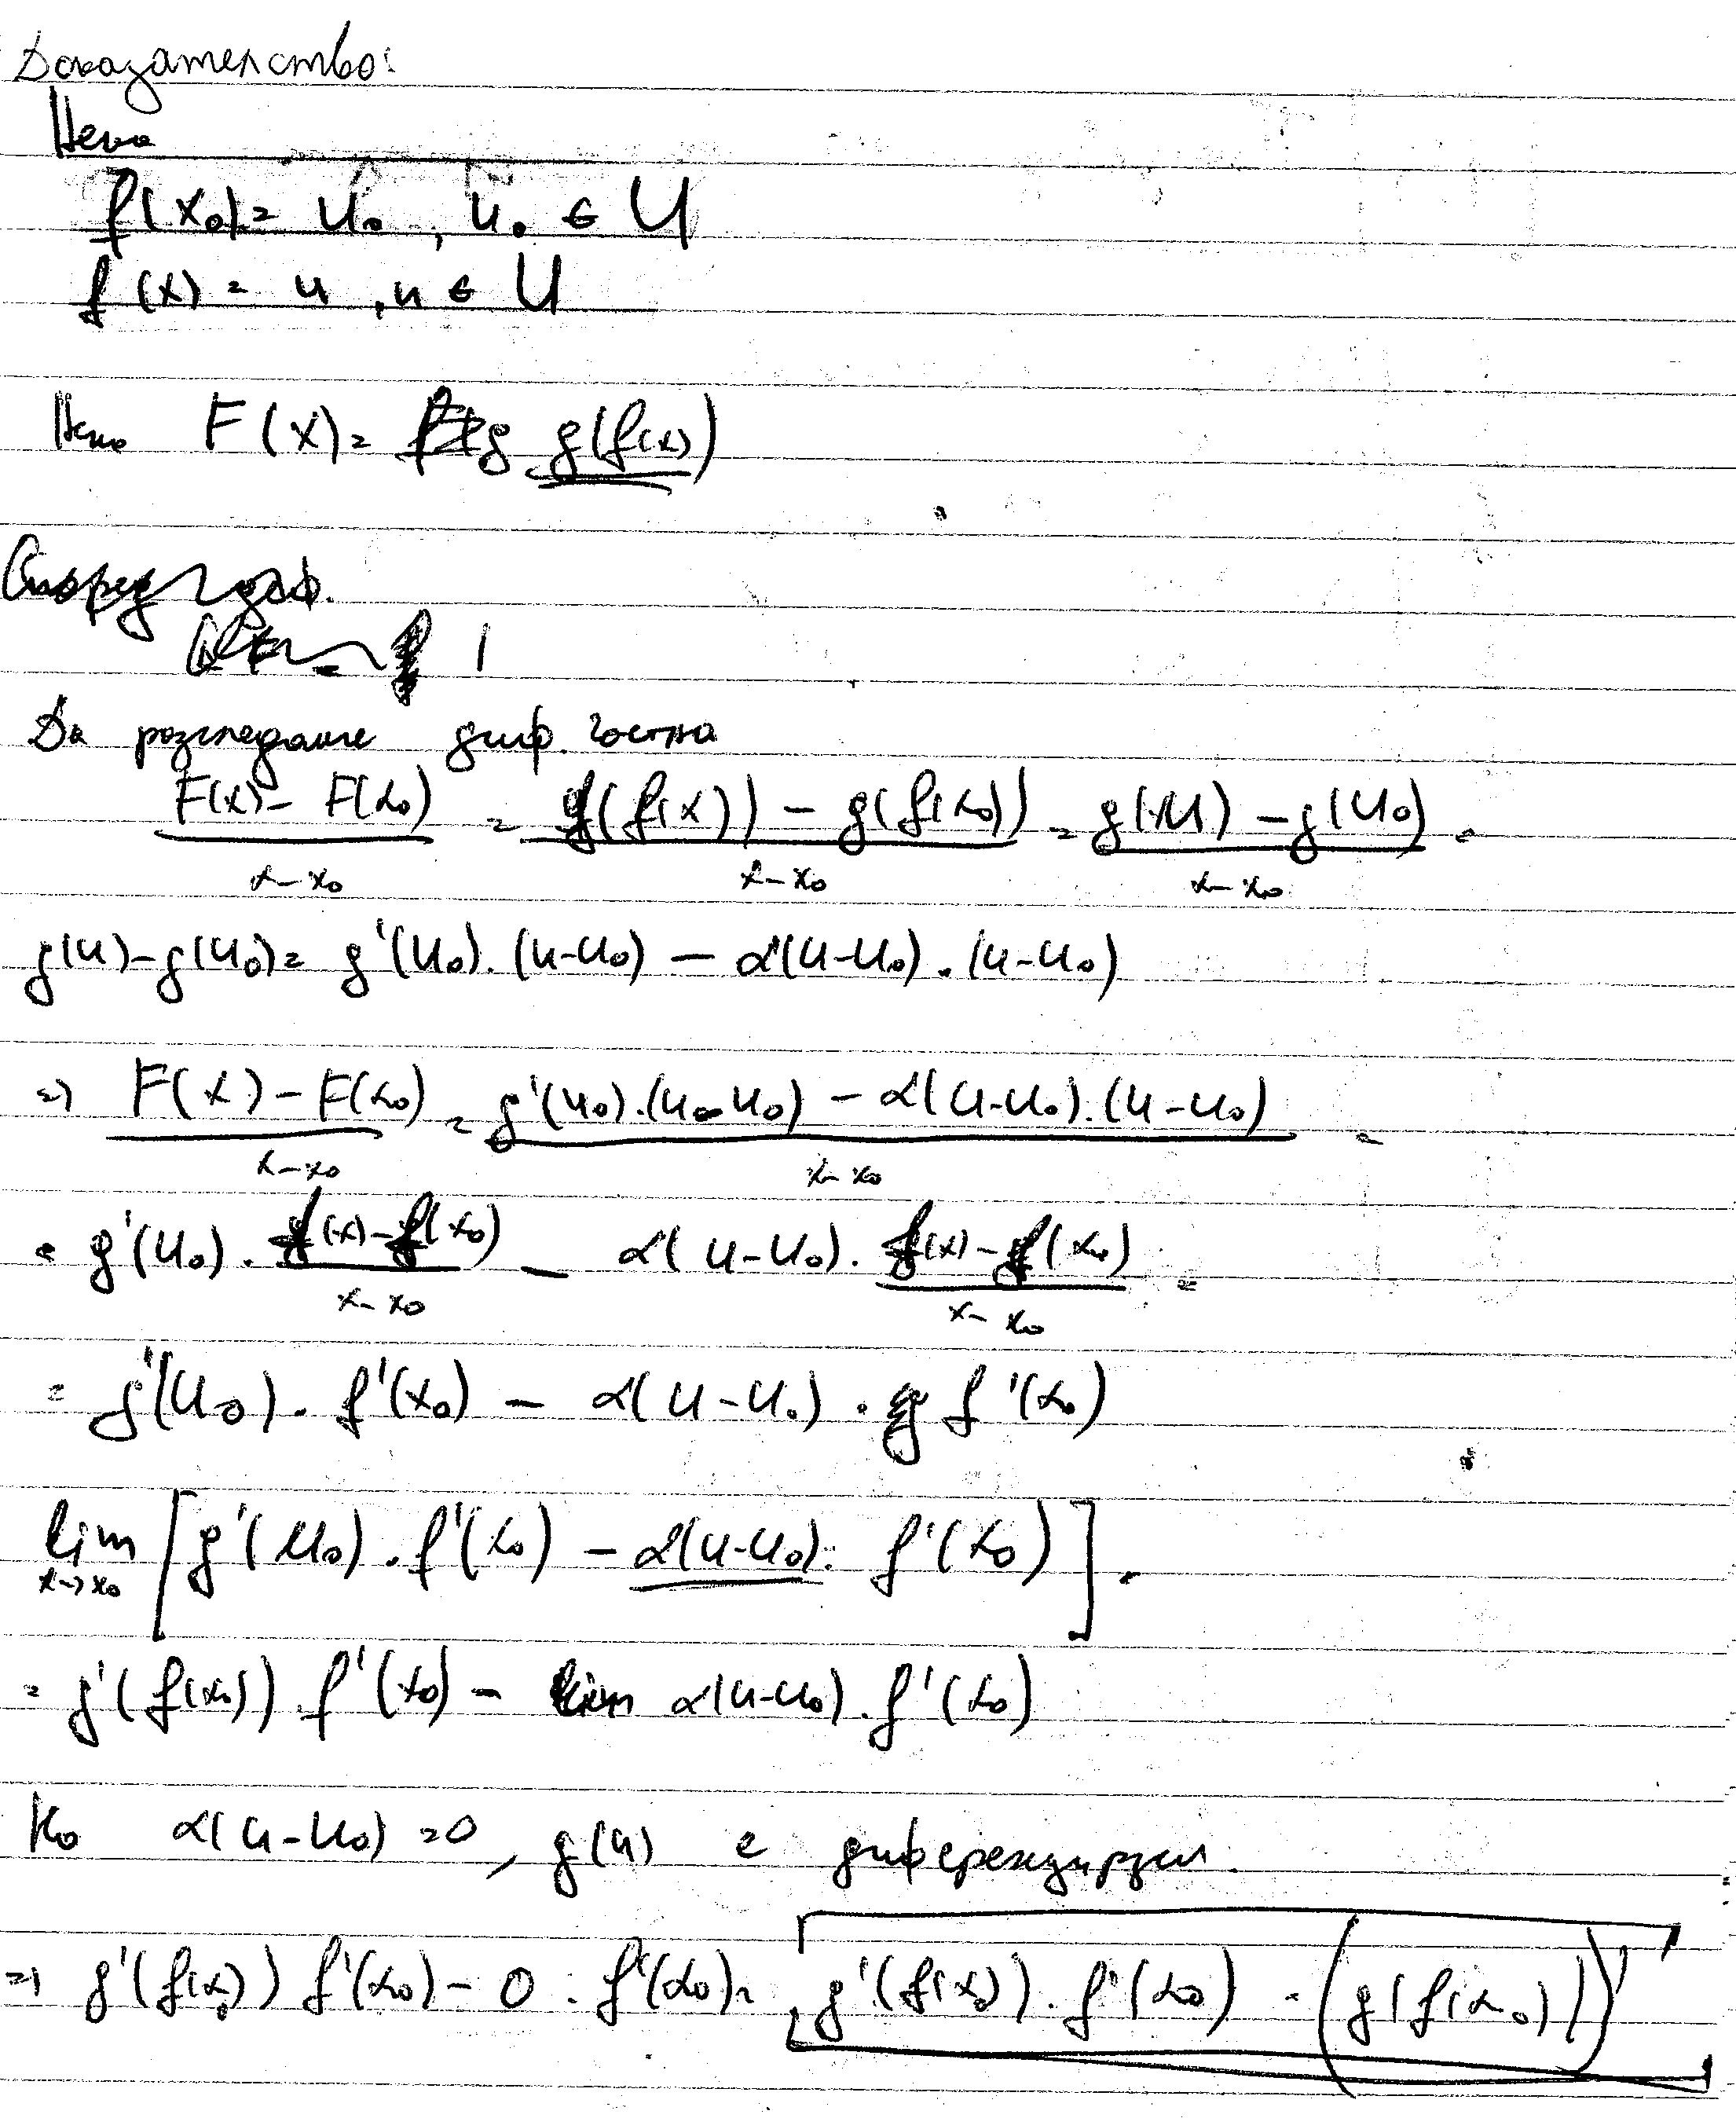 Доказателство:
Нека
f(x₀) = u₀, u₀ ∈ U
f(x) = u, u ∈ U
Нека F(x) = g(f(x))
Според деф.
Да разгледаме диф. частно
(F(x) - F(x₀))/(x - x₀) = (g(f(x)) - g(f(x₀)))/(x - x₀) = (g(u) - g(u₀))/(x - x₀) =
g(u) - g(u₀) = g'(u₀).(u-u₀) - α(u-u₀).(u-u₀)
=> (F(x) - F(x₀))/(x - x₀) = (g'(u₀).(u-u₀) - α(u-u₀).(u-u₀))/(x - x₀) =
= g'(u₀). (f(x) - f(x₀))/(x - x₀) - α(u-u₀). (f(x) - f(x₀))/(x - x₀) =
= g'(u₀). f'(x₀) - α(u-u₀). f'(x₀)
lim x→x₀ [g'(u₀). f'(x₀) - α(u-u₀). f'(x₀)] =
= g'(f(x₀)). f'(x₀) - lim α(u-u₀). f'(x₀)
Но α(u-u₀) = 0, g(u) е диференцируем.
=> g'(f(x₀)) f'(x₀) - 0 . f'(x₀) = g'(f(x₀)). f'(x₀) = (g(f(x₀)))'